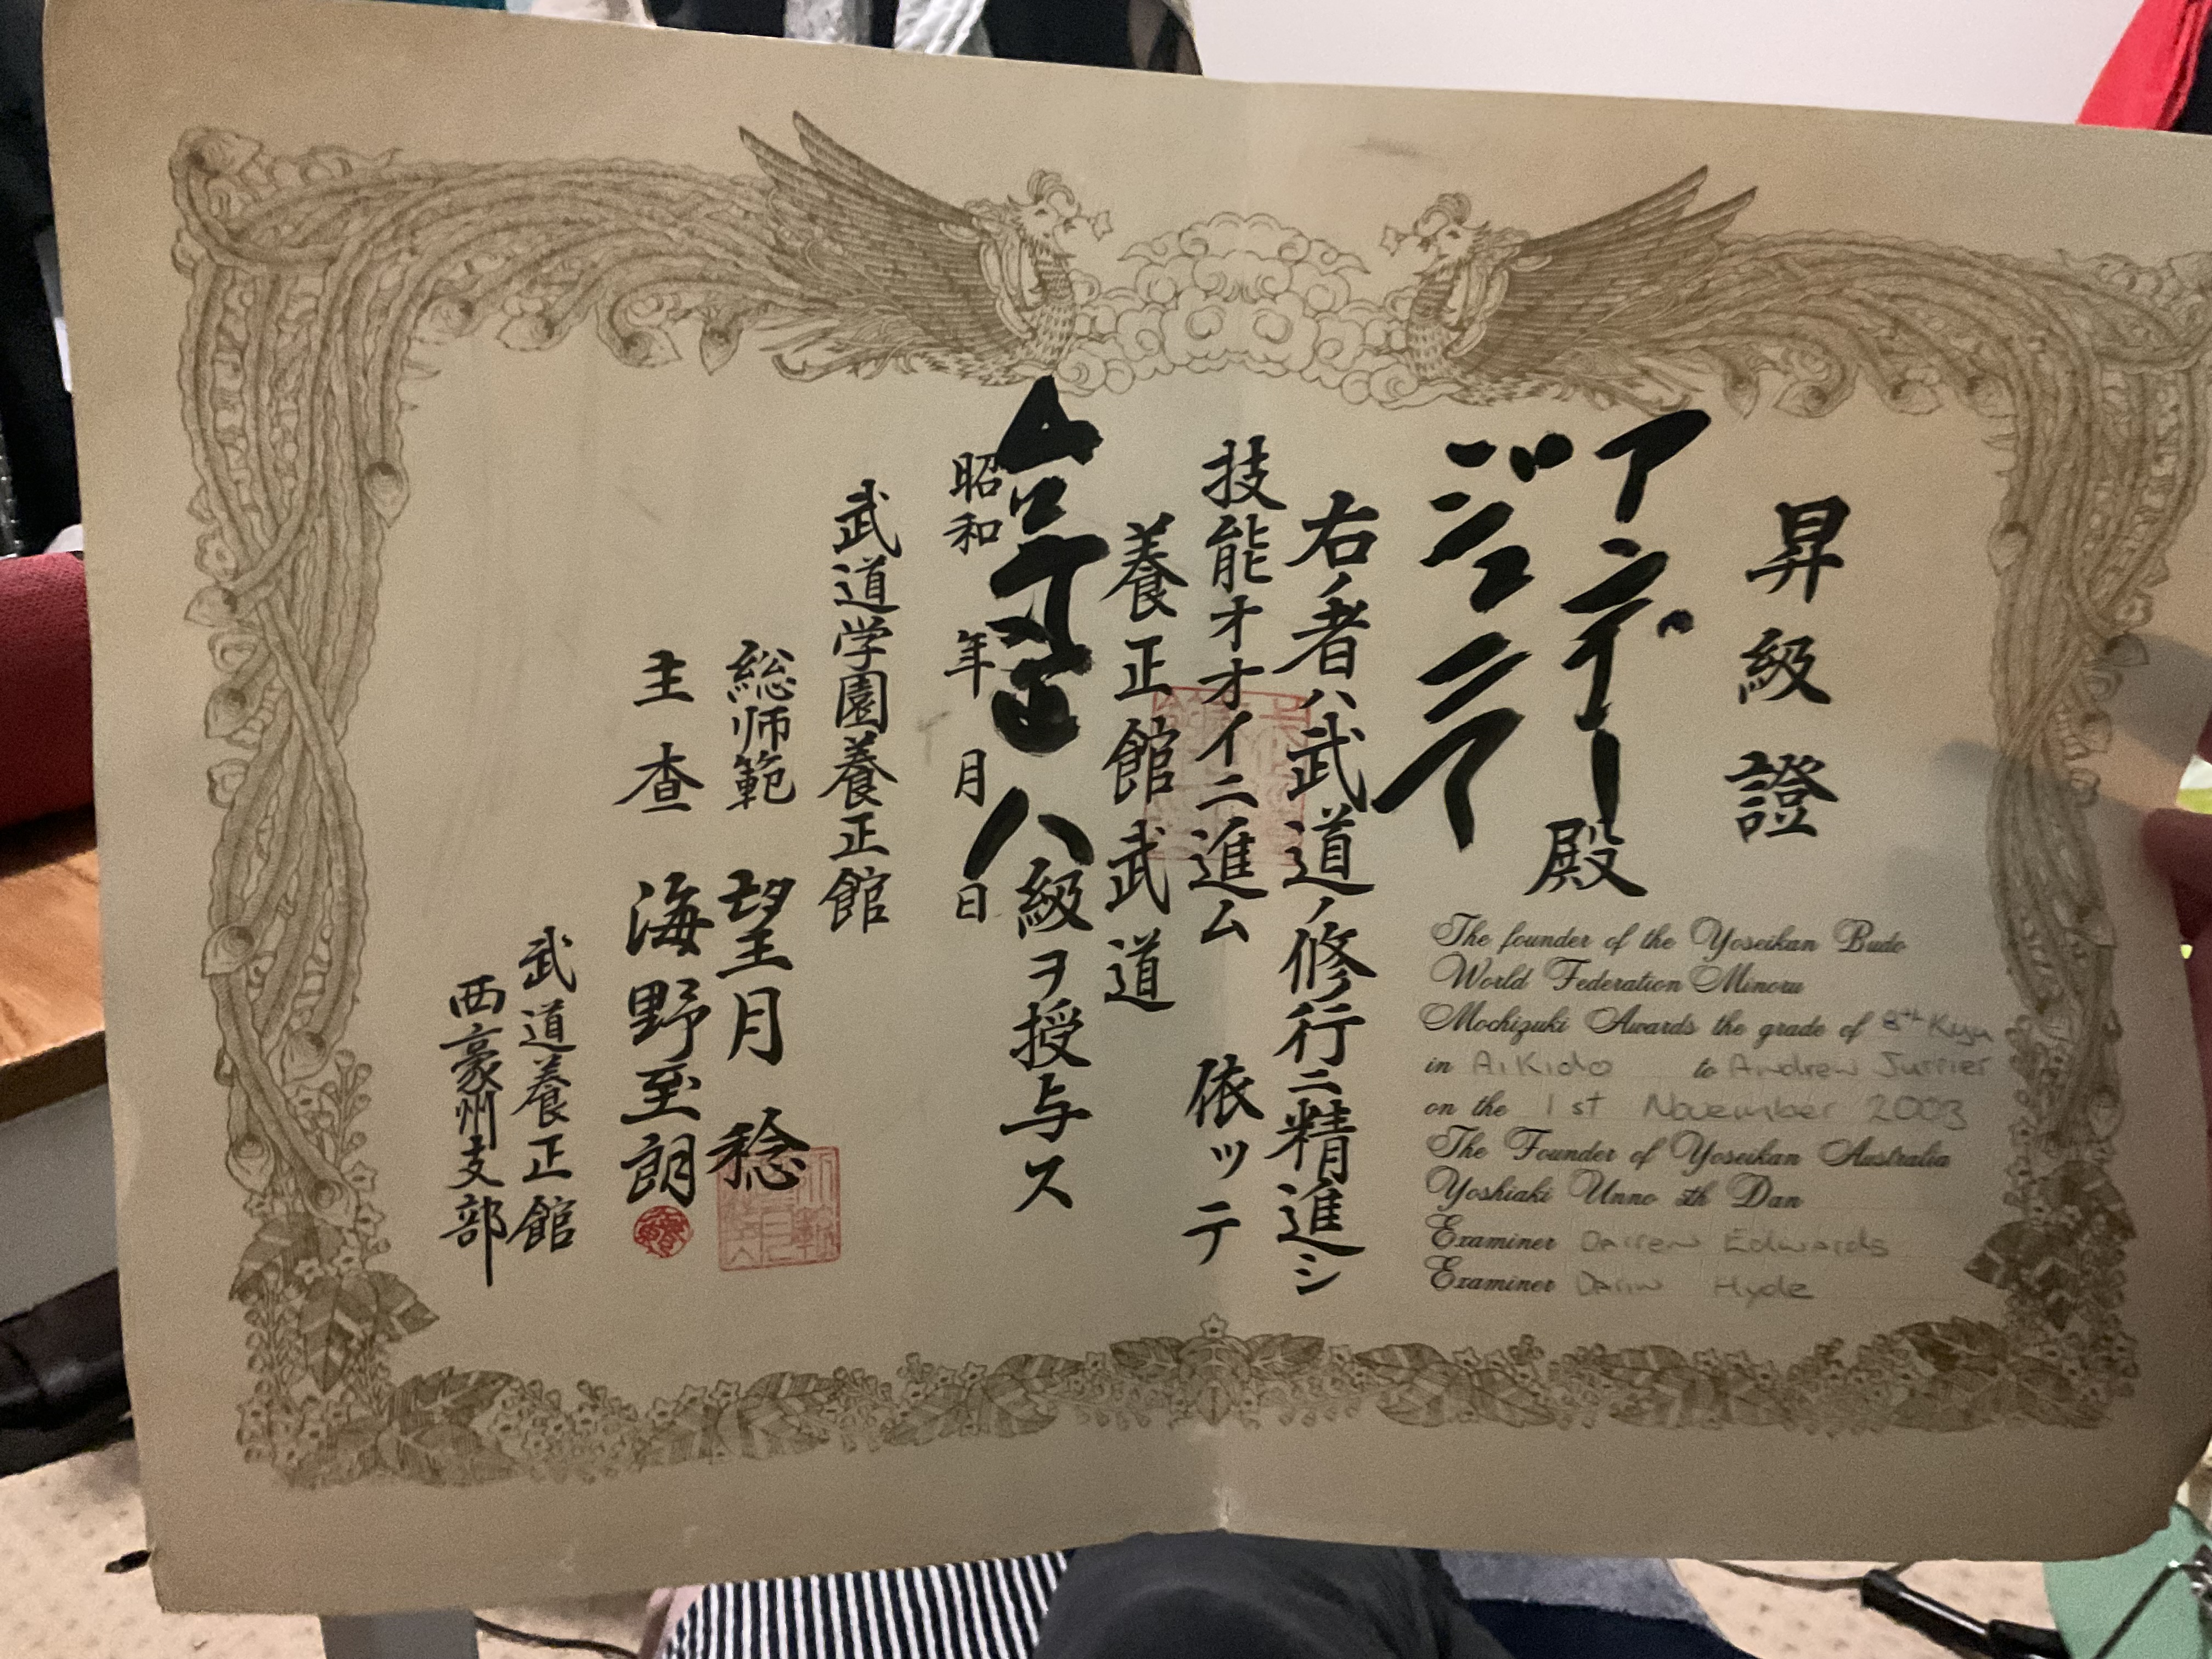 昇級證
アンデー
ジュニア
殿
右ノ者ハ武道ノ修行ニ精進シ
技能オオイニ進ム 依ッテ
養正館武道
八級ヲ授与ス
昭和 年 月 日
武道学園養正館
総师範 望月 稔
主査 海野至朗
武道養正館
西豪州支部
The founder of the Yoseikan Budo
World Federation Minoru
Mochizuki Awards the grade of 8th Kyu
in Aikido to Andrew Jurrier
on the 1st November 2003
The Founder of Yoseikan Australia
Yoshiaki Unno 5th Dan
Examiner Darren Edwards
Examiner Darin Hyde